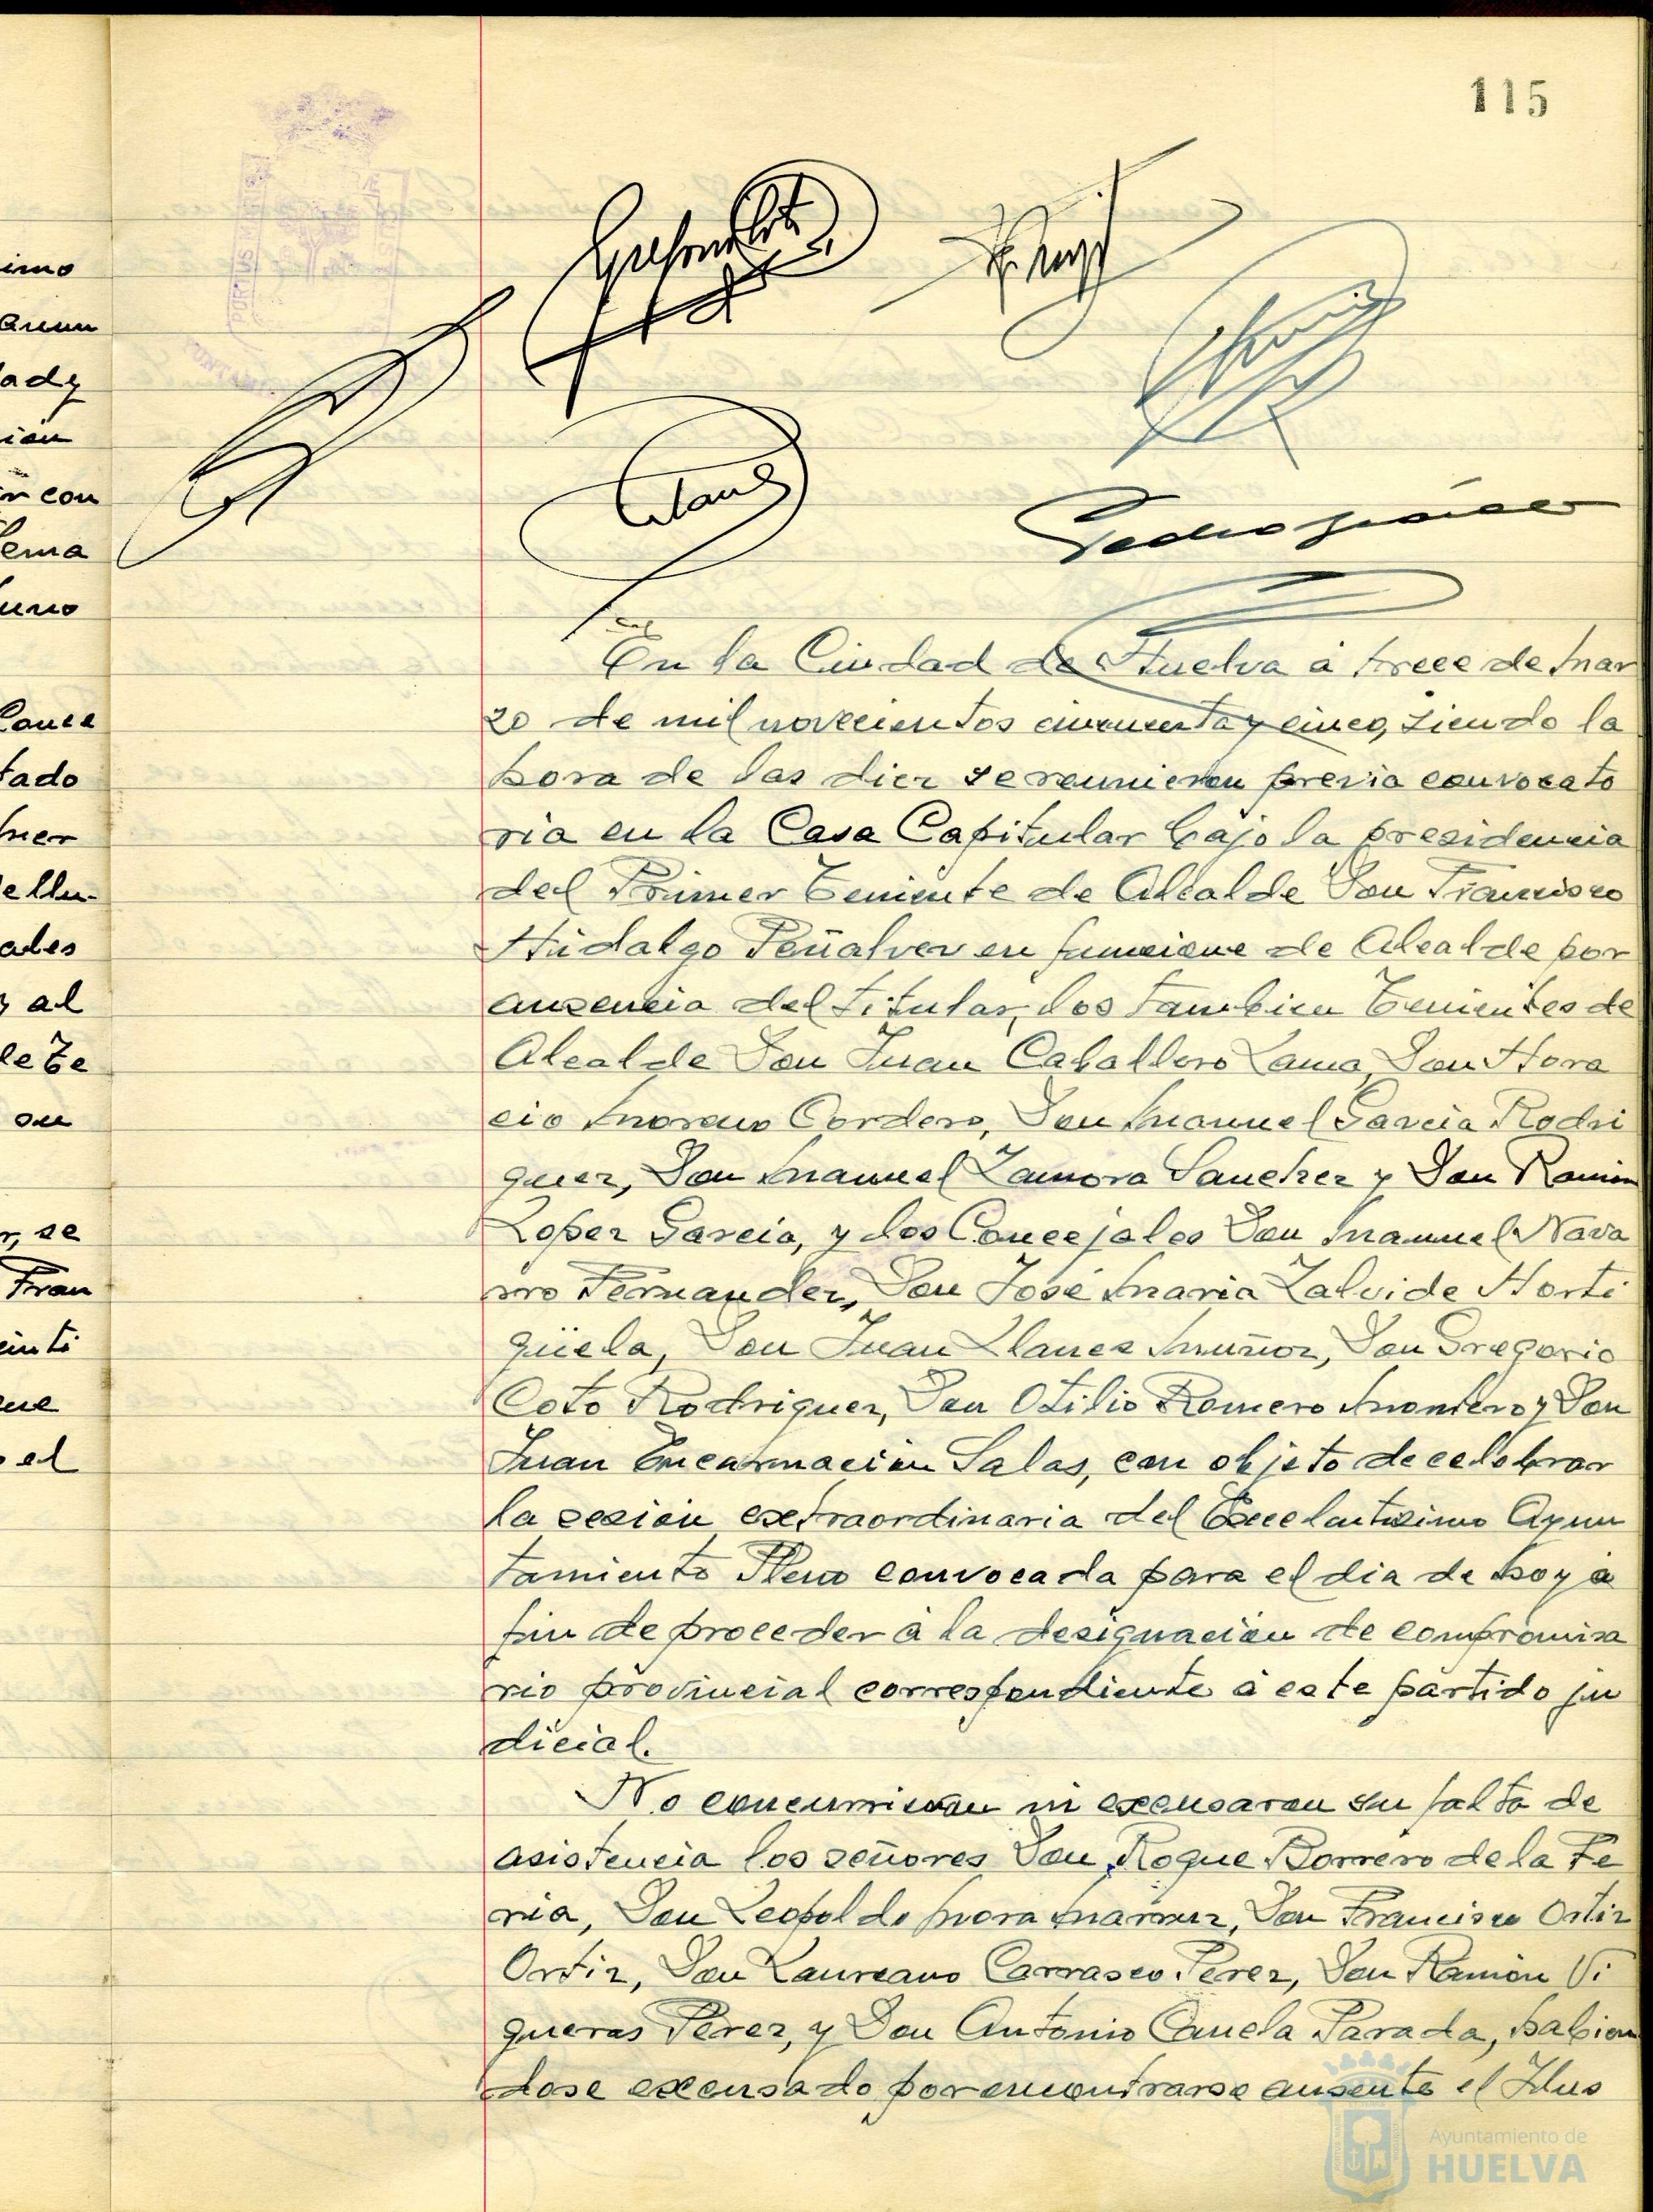 115
imo
ady
r con
uno
tado
ales
y al
su
r, se
Fran
el
Pedro
En la Ciudad de Huelva á trece de Mar
zo de mil novecientos cincuenta y cinco, siendo la
hora de las diez se reunieron previa convocato
ria en la Casa Capitular bajo la presidencia
del Primer Teniente de Alcalde Don Francisco
Hidalgo Peñalver en funcione de Alcalde por
ausencia del titular, los tambien Tenientes de
Alcalde Don Juan Caballero Lama, Don Hora
cio Moreno Cordero, Don Manuel Garcia Rodri
guez, Don Manuel Zamora Sanchez y Don Ramón
Lopez Garcia, y los Concejales Don Manuel Nava
rro Fernandez, Don José Maria Zalvide Horti
güela, Don Juan Llanes Muñoz, Don Gregorio
Coto Rodriguez, Don Otilio Romero Montero y Don
Juan Encarnación Salas, con objeto de celebrar
la sesión extraordinaria del Excelentisimo Ayun
tamiento Pleno convocada para el dia de hoy a
fin de proceder á la designación de compromisa
rio provincial correspondiente á este partido ju
dicial.
No concurrieron ni excusaron su falta de
asistencia los señores Don Roque Borrero de la Fe
ria, Don Leopoldo Mora, Don Francisco Ortiz
Ortiz, Don Laureano Carrasco Perez, Don Ramón Vi
gueras Pérez, y Don Antonio Canela Parada, habien
dose excusado por encontrarse ausente el Ilus
Ayuntamiento de
HUELVA